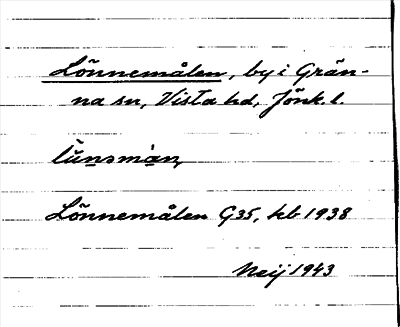 Lönnemålen, by i Grän-
na sn, Vista hd, Jönk. l.
lùnsmàn,
Lönnemålen G35, kb 1938
Neij 1943